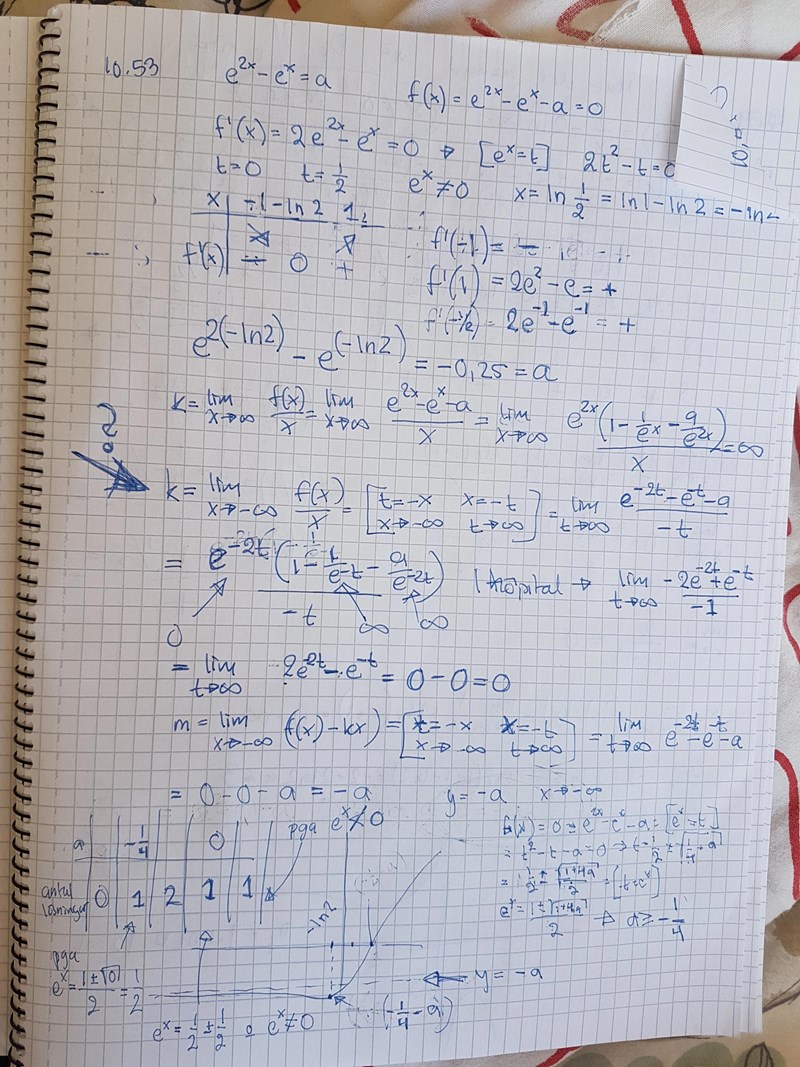 10.53 e^{2x} - e^x = a
f(x) = e^{2x} - e^x - a = 0
f'(x) = 2e^{2x} - e^x = 0 ⇒ [e^x = t] 2t^2 - t = 0
t = 0 t = 1/2 e^x ≠ 0 x = ln 1/2 = ln1 - ln2 = -ln
x | ÷1 -ln2 1
f'(x) | ÷ 0 +
f'(÷1) = -
f'(1) = 2e^2 - e = +
f'(-1/2) = 2e^{-1} - e^{-1} = +
e^{2(-ln2)} - e^{(-ln2)} = -0,25 = a
k = lim x→∞ f(x)/x = lim x→∞ (e^{2x} - e^x - a)/x = lim x→∞ e^{2x}(1 - 1/e^x - a/e^{2x})/x = ∞
?
k = lim x→-∞ f(x)/x = [t = -x x = -t x→-∞ t→∞] = lim t→∞ (e^{-2t} - e^{-t} - a)/-t
= e^{-2t}(1 - 1/e^{-t} - a/e^{-2t})/-t l'hôpital → lim t→∞ (-2e^{-2t} + e^{-t})/-1
0 ∞ ∞
= lim t→∞ 2e^{-2t} - e^{-t} = 0 - 0 = 0
m = lim x→-∞ (f(x) - kx) = [t = -x x = -t x→-∞ t→∞] = lim t→∞ e^{-2t} - e^{-t} - a
= 0 - 0 - a = -a y = -a x→-∞
a | -1/4 | 0
antal lösningar | 0 | 1 | 2 | 1 | 1
pga e^x ≠ 0
f(x) = 0 = e^{2x} - e^x - a = [e^x = t]
= t^2 - t - a = 0 ⇒ t = 1/2 ± √(1/4 + a)
= 1/2 ± √(1+4a)/2 = [t = e^x]
e^x = (1 ± √(1+4a))/2 ⇒ a ≥ -1/4
-ln2
pga
e^x = (1 ± √0)/2 = 1/2
y = -a
(-1/4 - a)
e^x = 1/2 ± 1/2 o e^x ≠ 0